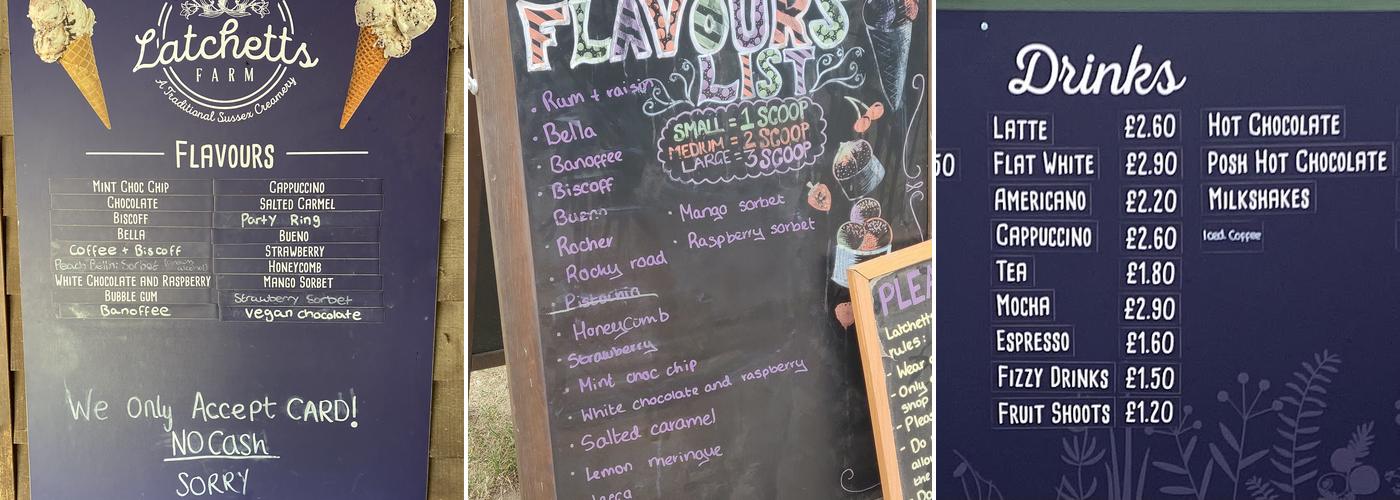 Latchetts
FARM
A Traditional Sussex Creamery
FLAVOURS
MINT CHOC CHIP
CHOCOLATE
BISCOFF
BELLA
Coffee + Biscoff
Peach Bellini Sorbet
WHITE CHOCOLATE AND RASPBERRY
BUBBLE GUM
Banoffee
CAPPUCCINO
SALTED CARMEL
Party Ring
BUENO
STRAWBERRY
HONEYCOMB
MANGO SORBET
Strawberry Sorbet
Vegan chocolate
We Only Accept CARD!
NO Cash
SORRY
FLAVOURS
LIST
SMALL = 1 SCOOP
MEDIUM = 2 SCOOP
LARGE = 3 SCOOP
Rum + raisin
Bella
Banoffee
Biscoff
Bueno
Rocher
Rocky road
Pistachio
HoneyComb
Strawberry
Mint choc chip
White chocolate and raspberry
Salted caramel
Lemon meringue
Mango sorbet
Raspberry sorbet
PLEA
Latchett
rules:
- Wear
- Only
shop
- Pleas
- Do
allo
the
- Do
Drinks
50
LATTE £2.60
FLAT WHITE £2.90
AMERICANO £2.20
CAPPUCCINO £2.60
TEA £1.80
MOCHA £2.90
ESPRESSO £1.60
FIZZY DRINKS £1.50
FRUIT SHOOTS £1.20
HOT CHOCOLATE
POSH HOT CHOCOLATE
MILKSHAKES
Iced Coffee